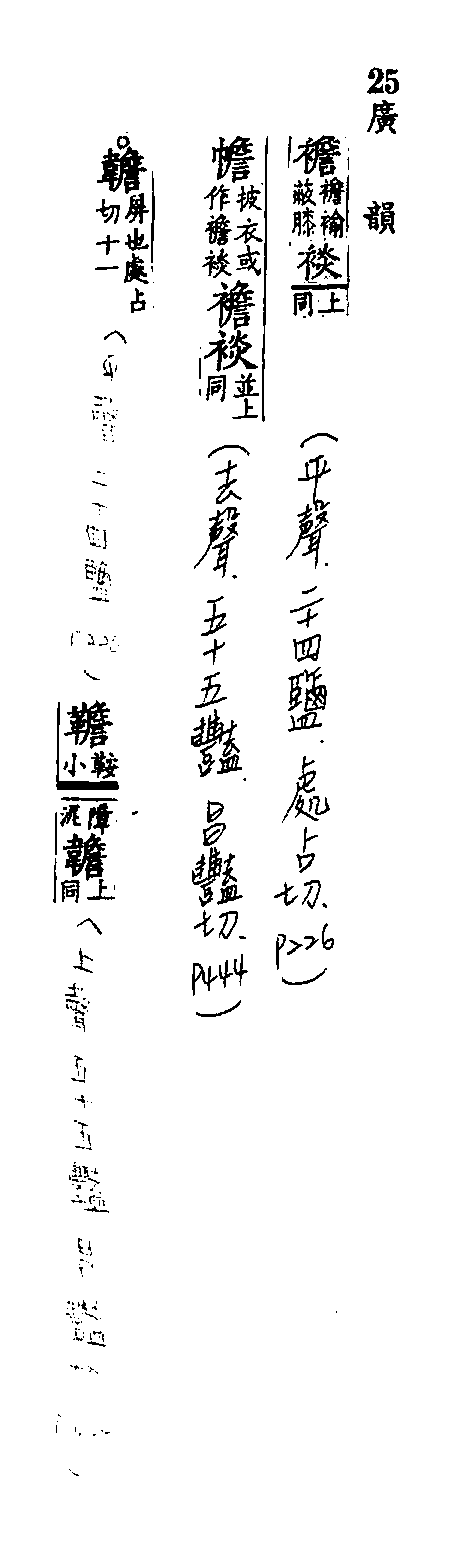 25 廣韻
襜襜褕蔽膝裧上同(平聲.二十四鹽.處占切.P226)
幨披衣或作襜裧襜裧並上同(去聲.五十五豔.昌豔切.P444)
屏也處占切十一(平聲二十四鹽P226)韂鞍小障泥上同(上聲五十五豔